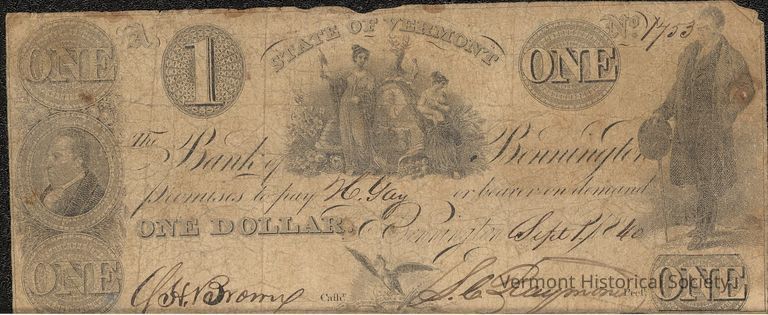 ONE A 1 STATE OF VERMONT ONE No. 1753
The Bank of Bennington
promises to pay H. Gay or bearer on demand
ONE DOLLAR. Bennington Sept 1, 1840
ONE C. H. Brown Cashr. S. C. Raymond Prest. ONE
Vermont Historical Society